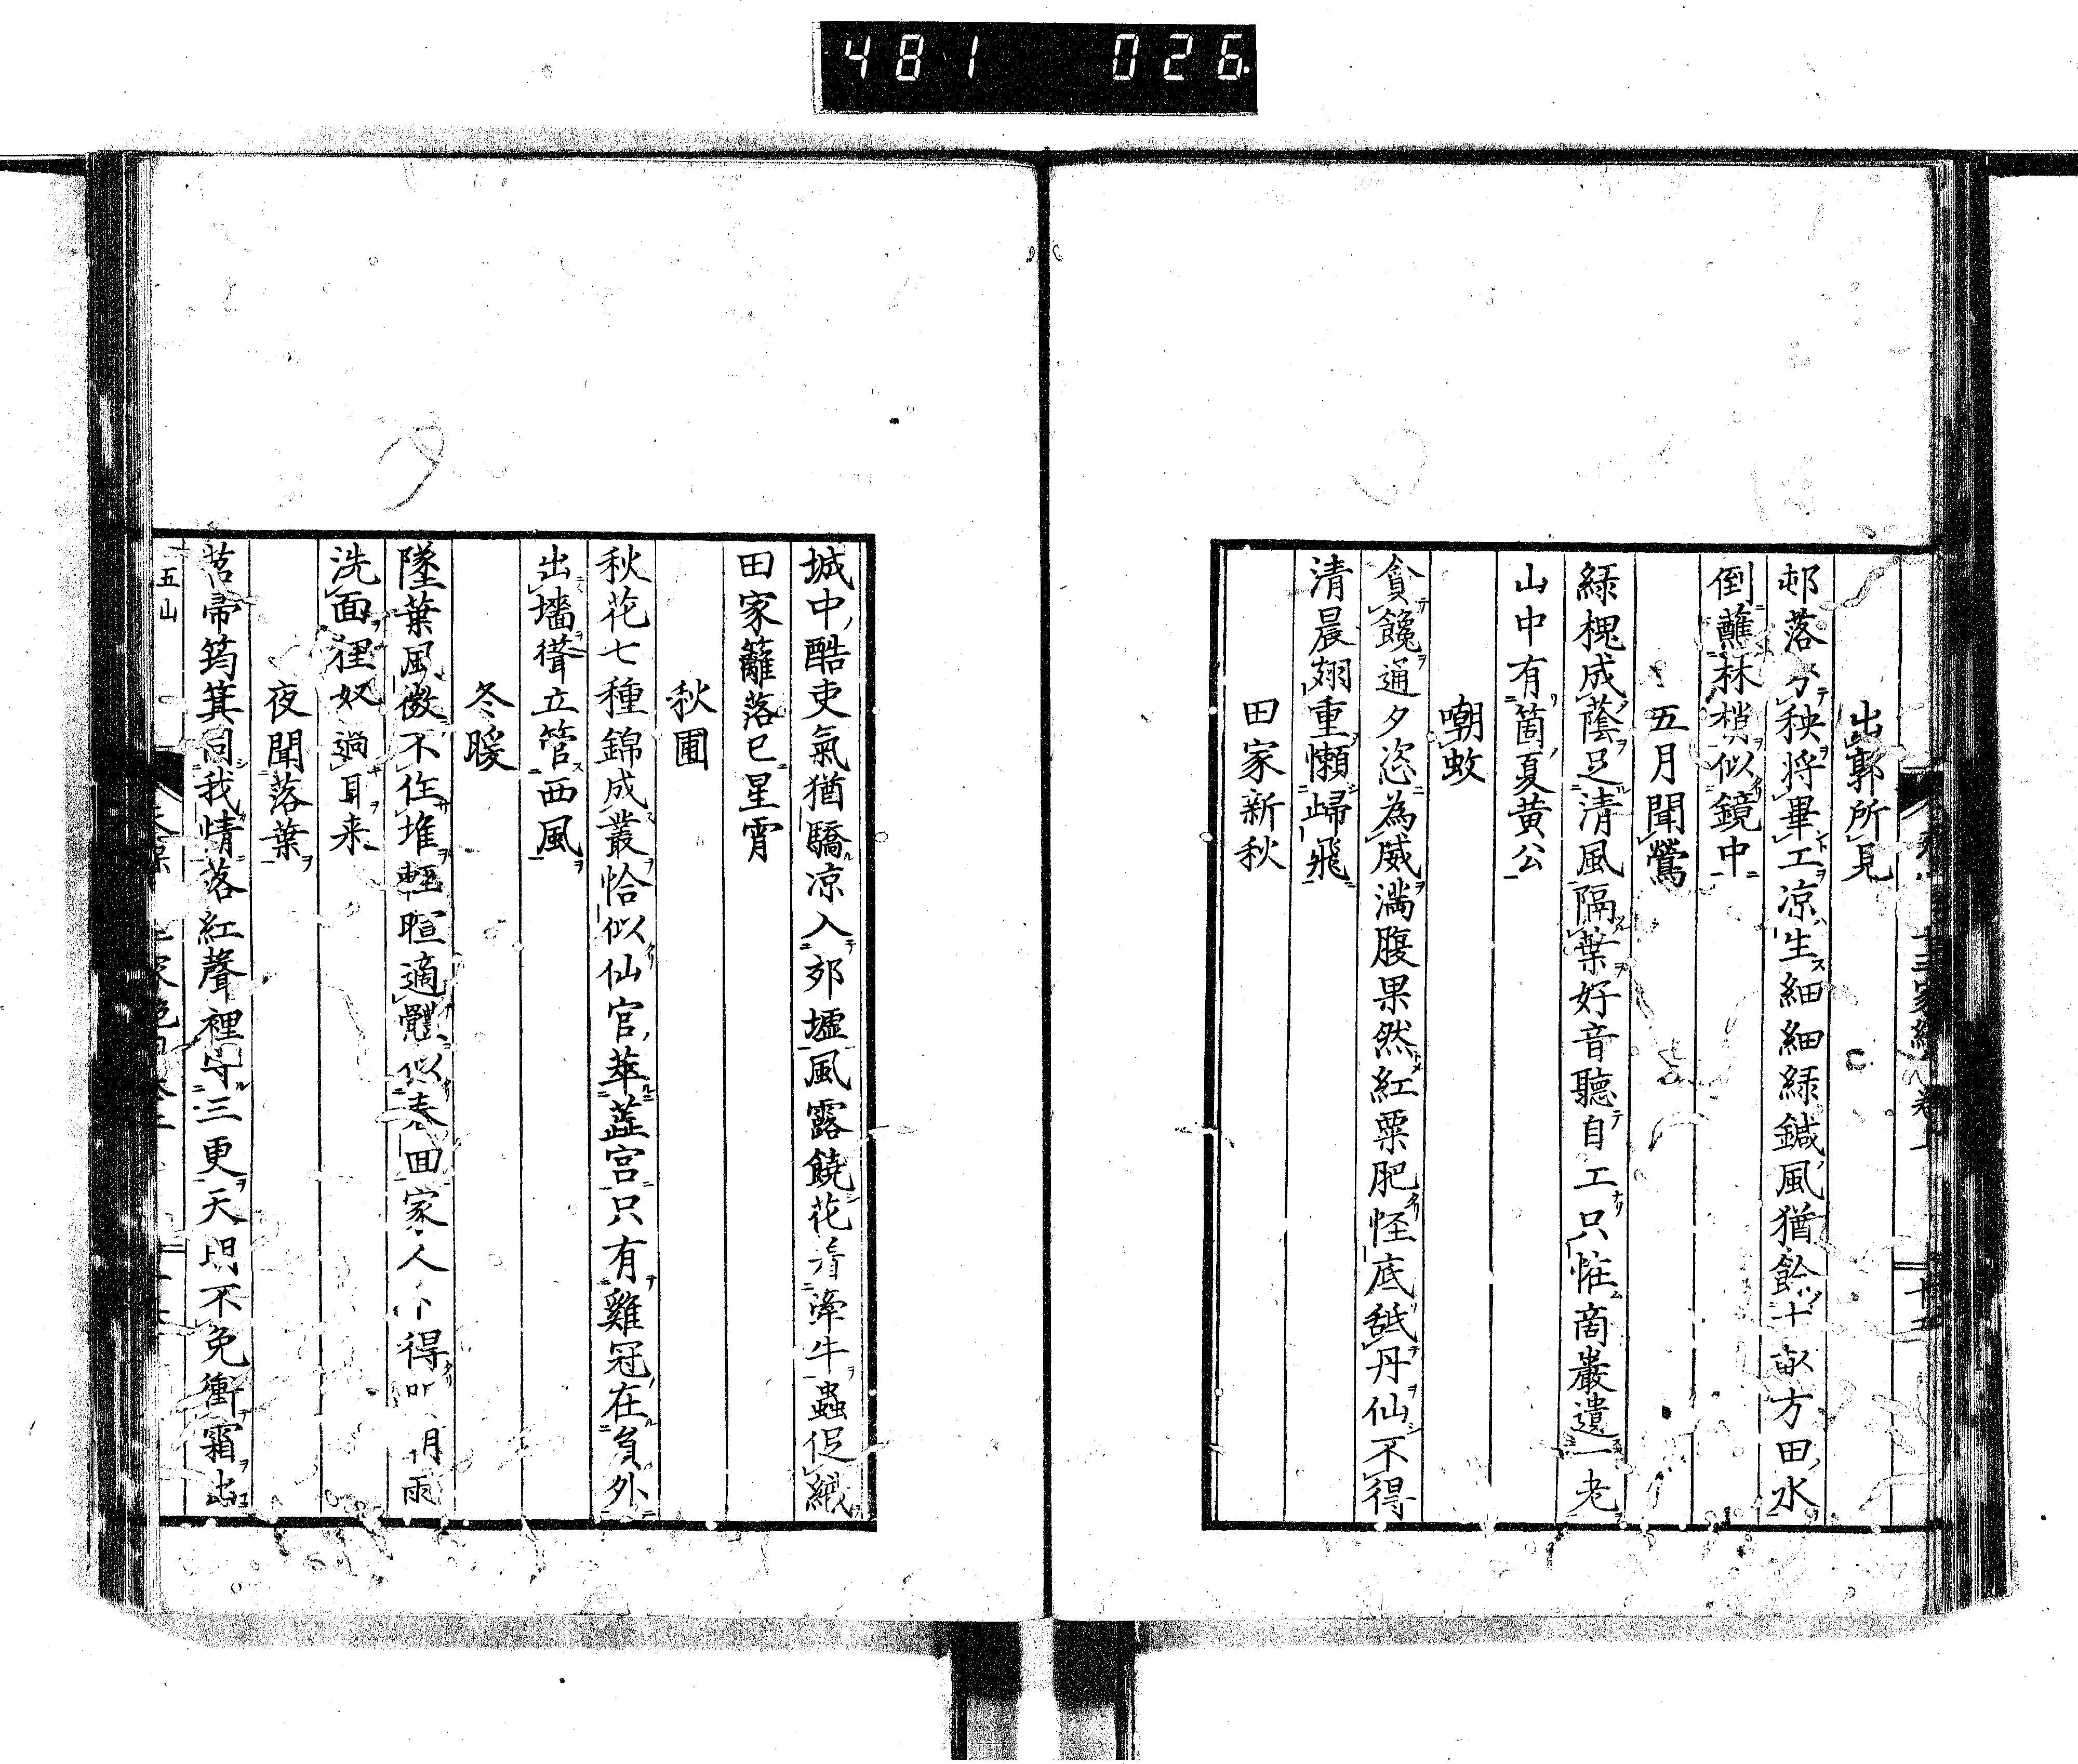 481 026
出郭所見
邨落分秧將畢工涼生細細綠鍼風猶餘十畝方田水
倒蘸林梢似鏡中
五月聞鶯
綠槐成蔭足清風隔葉好音聽自工只怪商巖遺一老
山中有箇夏黃公
嘲蚊
貪饞通夕恣為威滿腹果然紅粟肥怪底舐丹仙不得
清晨翅重懶歸飛
田家新秋
城中酷吏氣猶驕凉入郊墟風露饒花着牽牛蟲促織
田家籬落已星霄
秋圃
秋花七種錦成叢恰似仙官萃蕋宮只有雞冠在負外
出墻聳立管西風
冬暖
墜葉風微不住堆輕暄適體似春回家人得月雨
洗面狸奴過耳来
夜聞落葉
苕帚筠箕同我情落紅聲裡守三更天明不免衝霜出
五山